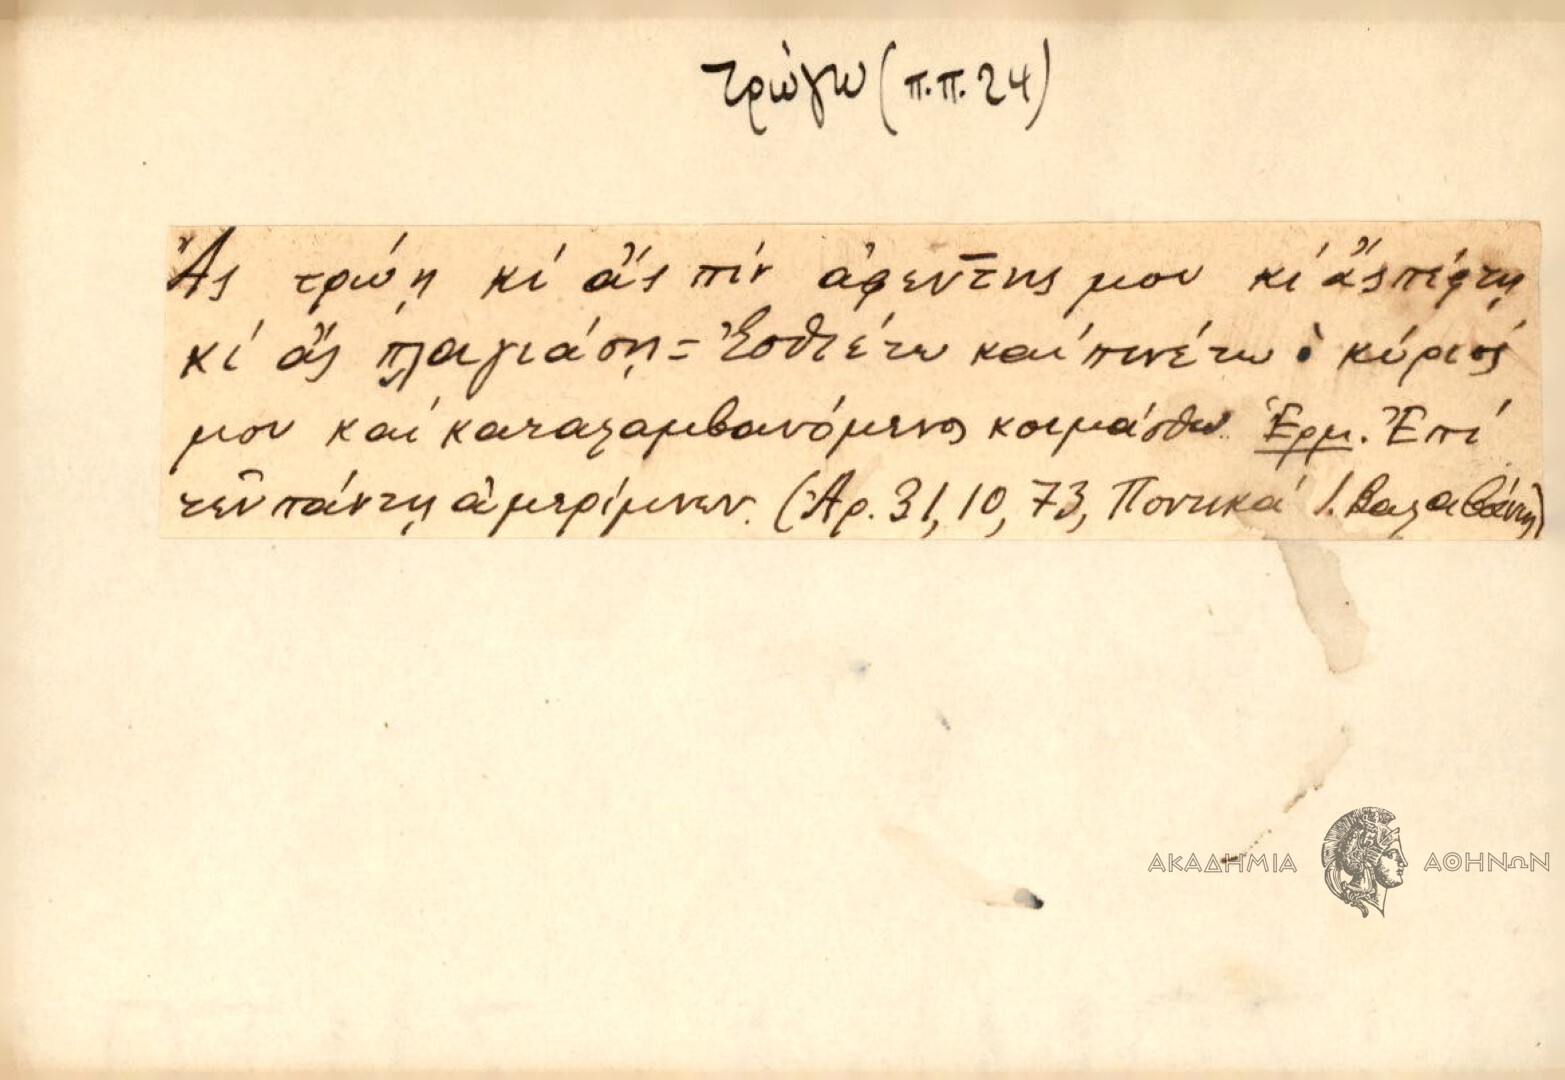 τρώγω (π.π. 24)
Ἂς τρώῃ κί ἂς πίν ἀφεντης μου κί ἂς πέφτῃ
κί ἂς πλαγιάσῃ = Ἐσθιέτω καί πινέτω ὁ κύριός
μου καί καταλαμβανόμενος κοιμάσθω. Ἑρμ. Ἐπί
τῶν πάντῃ ἀμερίμνων. (Ἀρ. 31, 10, 73, Ποντικά Ι. Βαλαβάνη)
ΑΚΑΔΗΜΙΑ ΑΘΗΝΩΝ